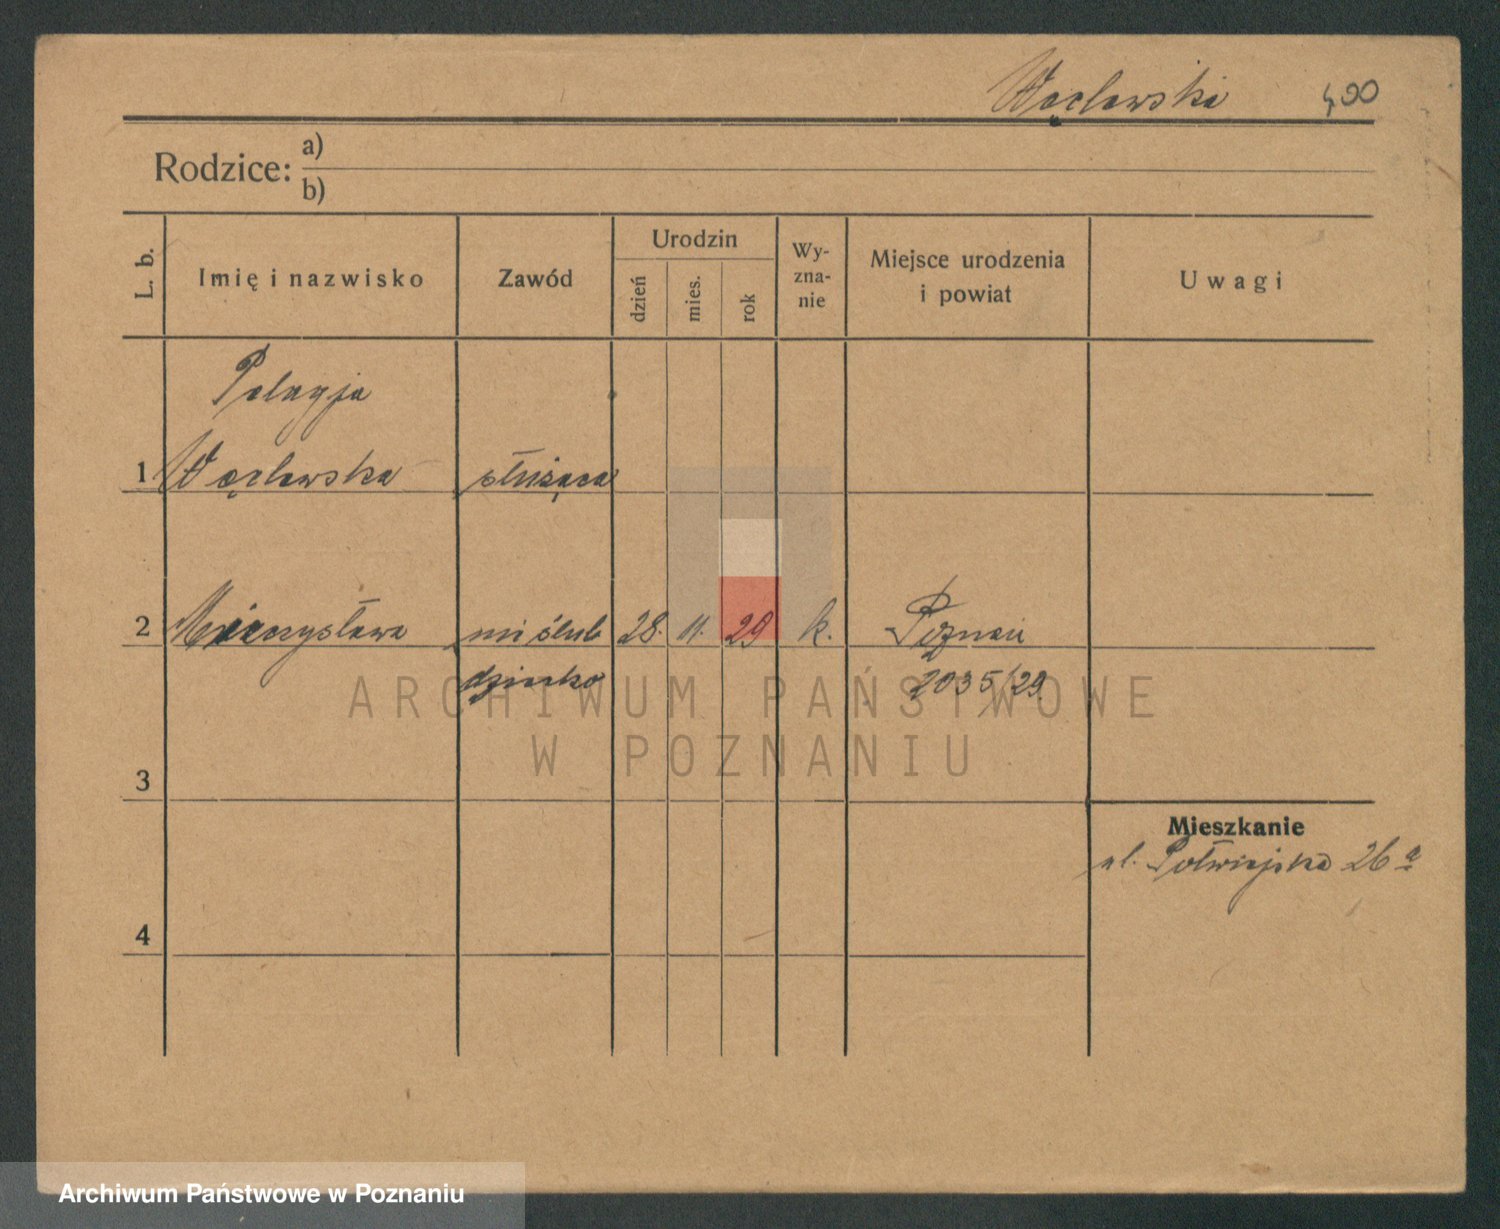 Węclewski 400
Rodzice: a)
b)
L. b. Imię i nazwisko Zawód Urodzin dzień mies. rok Wy-zna-nie Miejsce urodzenia i powiat Uwagi
Pelagja
1 Węclewska służąca
2 Mieczysława nieślub 28. 11. 29 k. Poznań
dziecko 2035/29
ARCHIWUM PAŃSTWOWE
W POZNANIU
3
Mieszkanie
ul. Półwiejska 26a
4
Archiwum Państwowe w Poznaniu